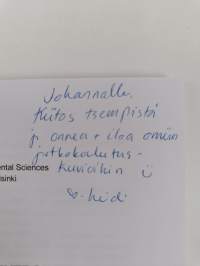 Johannalle,
Kiitos tsempistä
ja onnea + iloa omiin
jatkokoulutus-
kuvioihin
ental Sciences
lsinki
♡ - Heidi